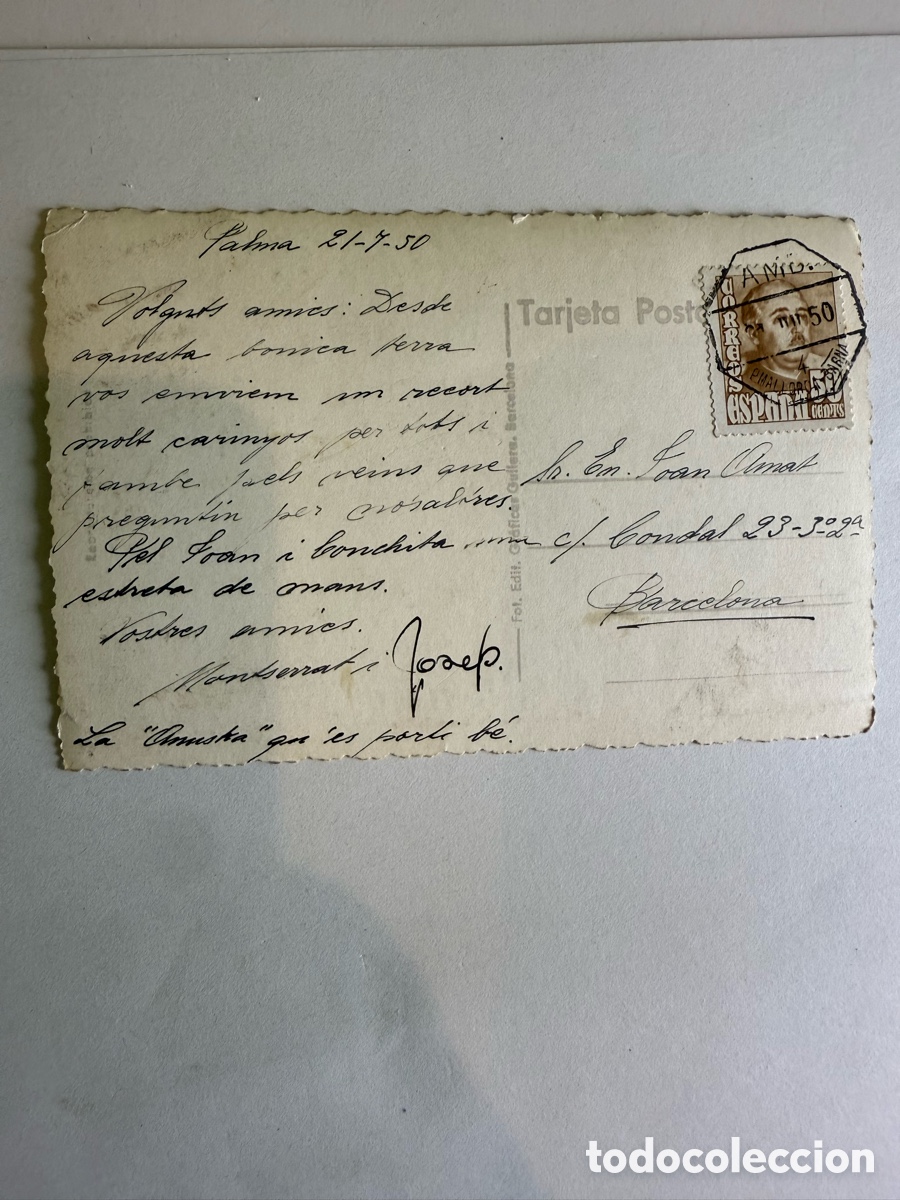 Palma 21-7-50
Volguts amics: Desde
aquesta bonica terra
vos enviem un recort
molt carinyos per tots i
tambe pels veins que
preguntin per nosaltres.
Pel Joan i Conchita una
estreta de mans.
Vostres amics.
Montserrat i Josep.
La "Anuska" qu'es porti bé.
Tarjeta Posta
Fot. Edit. Gráficas Barcelona
CORREOS
ESPAÑA 50
CENTS
AMB.
50
4
Sr. En. Joan Amat
c/. Condal 23-3º-2ª
Barcelona
todocoleccion